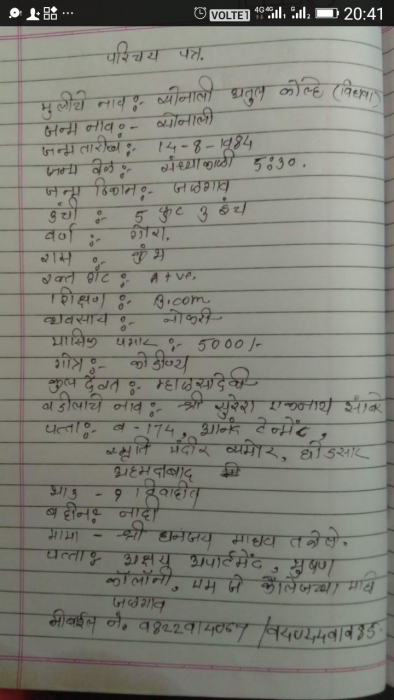 20:41
परिचय पत्र.
मुलीचे नाव :- सोनाली अतुल कोल्हे (विधवा)
जन्म नाव :- सोनाली
जन्मतारीख :- 14-8-1984
जन्म वेळ :- संध्याकाळी 5:30.
जन्म ठिकाण :- जळगाव
उंची :- 5 फुट 3 इंच
वर्ण :- गोरा.
रास :- कुंभ
रक्त गट :- A+ve.
शिक्षण :- B.com
व्यवसाय :- नोकरी
मासिक पगार :- 5000/-
गोत्र :- कौडीण्य
कुलदैवत :- म्हाळसादेवी
वडीलांचे नाव :- श्री सुरेश एकनाथ
पत्ता :- ब-174, आनंद टेनमेंट,
स्मृति मंदीर समोर, घोडसार
अहमदाबाद
भाऊ - १ विवाहीत
बहीण :- नाही
मामा - श्री धनंजय माधव
पत्ता :- अक्षय अपार्टमेंट, भुषण
कॉलॉनी, एम जे कॉलेजच्या मागे
जळगाव
मोबाईल नं.